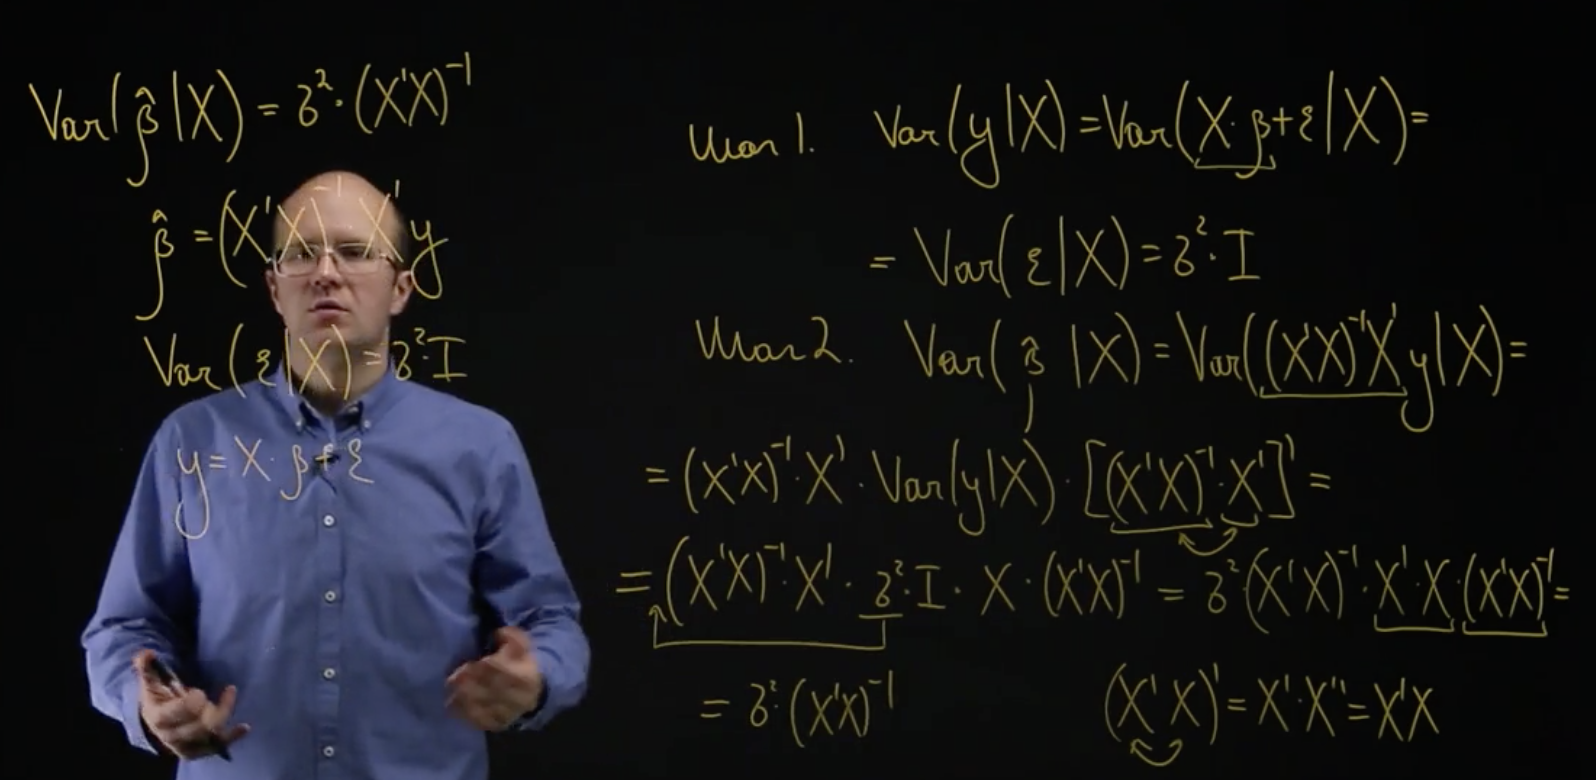 Var(β̂|X) = σ²·(X'X)⁻¹
β̂ = (X'X)⁻¹X'y
Var(ε|X) = σ²·I
y = X·β + ε
Шаг 1. Var(y|X) = Var(X·β + ε|X) =
= Var(ε|X) = σ²·I
Шаг 2. Var(β̂|X) = Var((X'X)⁻¹X'y|X) =
= (X'X)⁻¹·X'·Var(y|X)·[(X'X)⁻¹·X']' =
= (X'X)⁻¹·X'·σ²·I·X·(X'X)⁻¹ = σ²(X'X)⁻¹·X'·X·(X'X)⁻¹ =
= σ²·(X'X)⁻¹
(X'X)' = X'·X'' = X'X